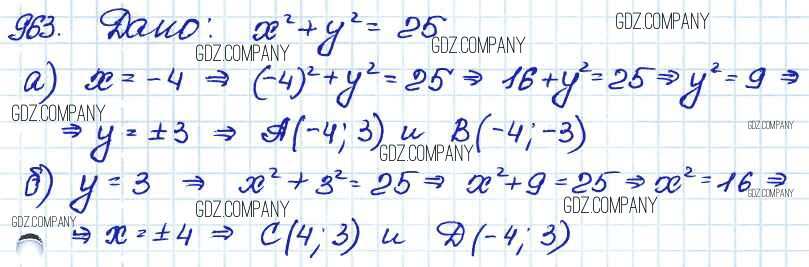 963. Дано: x² + y² = 25
GDZ.COMPANY GDZ.COMPANY GDZ.COMPANY
а) x = -4 ⇒ (-4)² + y² = 25 ⇒ 16 + y² = 25 ⇒ y² = 9 ⇒
GDZ.COMPANY
⇒ y = ±3 ⇒ A(-4; 3) и B(-4; -3)
GDZ.COMPANY
GDZ.COMPANY
б) y = 3 ⇒ x² + 3² = 25 ⇒ x² + 9 = 25 ⇒ x² = 16 ⇒
GDZ.COMPANY
GDZ.COMPANY GDZ.COMPANY GDZ.COMPANY
⇒ x = ±4 ⇒ C(4; 3) и D(-4; 3)